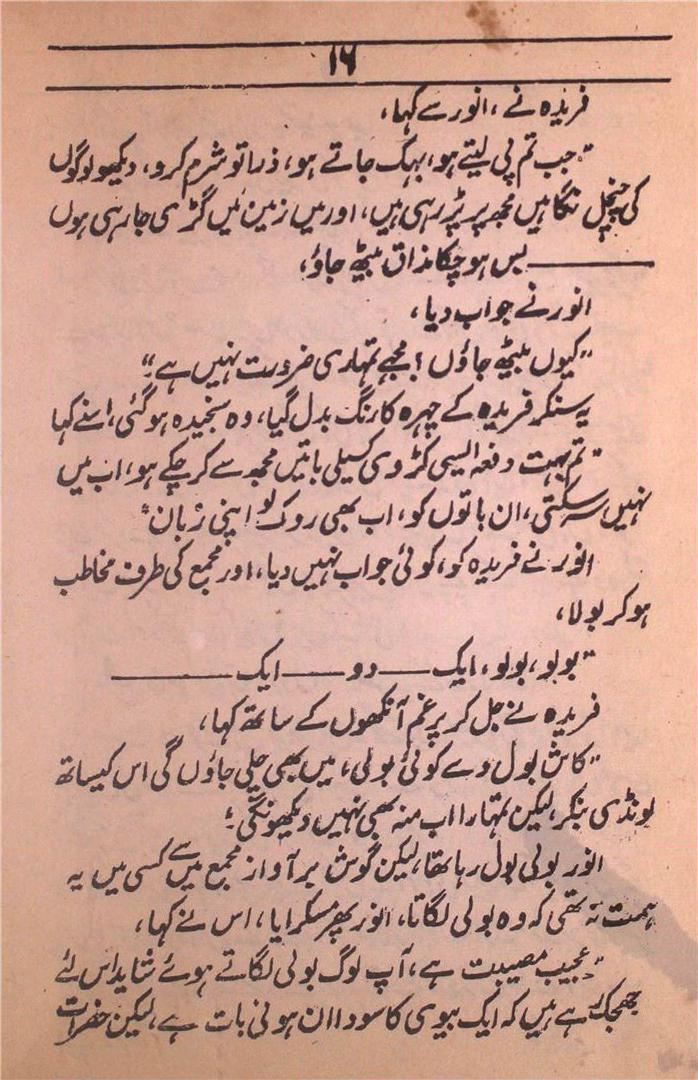 ۱۶
فریدہ نے، انور سے کہا،
"جب تم پی لیتے ہو، بہک جاتے ہو، ذرا تو شرم کرو، دیکھو لوگوں
کی چنچل نگاہیں مجھ پر پڑ رہی ہیں، اور میں زمین میں گڑی جا رہی ہوں
——— بس ہو چکا مذاق بیٹھ جاؤ،
انور نے جواب دیا،
"کیوں بیٹھ جاؤں؟ مجھے تمہاری ضرورت نہیں ہے"
یہ سنکر فریدہ کے چہرہ کا رنگ بدل گیا، وہ سنجیدہ ہو گئی، اسنے کہا
"تم بہت دفعہ ایسی کڑوی کسیلی باتیں مجھ سے کر چکے ہو، اب میں
نہیں سہ سکتی، ان باتوں کو، اب بھی روک لو اپنی زبان"
انور نے فریدہ کو، کوئی جواب نہیں دیا، اور مجمع کی طرف مخاطب
ہو کر بولا،
"بولو، بولو، ایک —— دو —— ایک ————
فریدہ نے جل کر پرغم آنکھوں کے ساتھ کہا،
"کاش بول دے کوئی بولی، میں بھی چلی جاؤں گی اس کیساتھ
لونڈی بنکر، لیکن تمہارا اب منہ بھی نہیں دیکھونگی"
انور بولی بول رہا تھا، لیکن گوش بر آواز مجمع میں سے کسی میں یہ
ہمت نہ تھی کہ وہ بولی لگاتا، انور پھر مسکرایا، اس نے کہا،
"عجیب مصیبت ہے، آپ لوگ بولی لگاتے ہوئے شاید اس لئے
جھجک رہے ہیں کہ ایک بیوی کا سودا ان ہونی بات ہے، لیکن حضرات